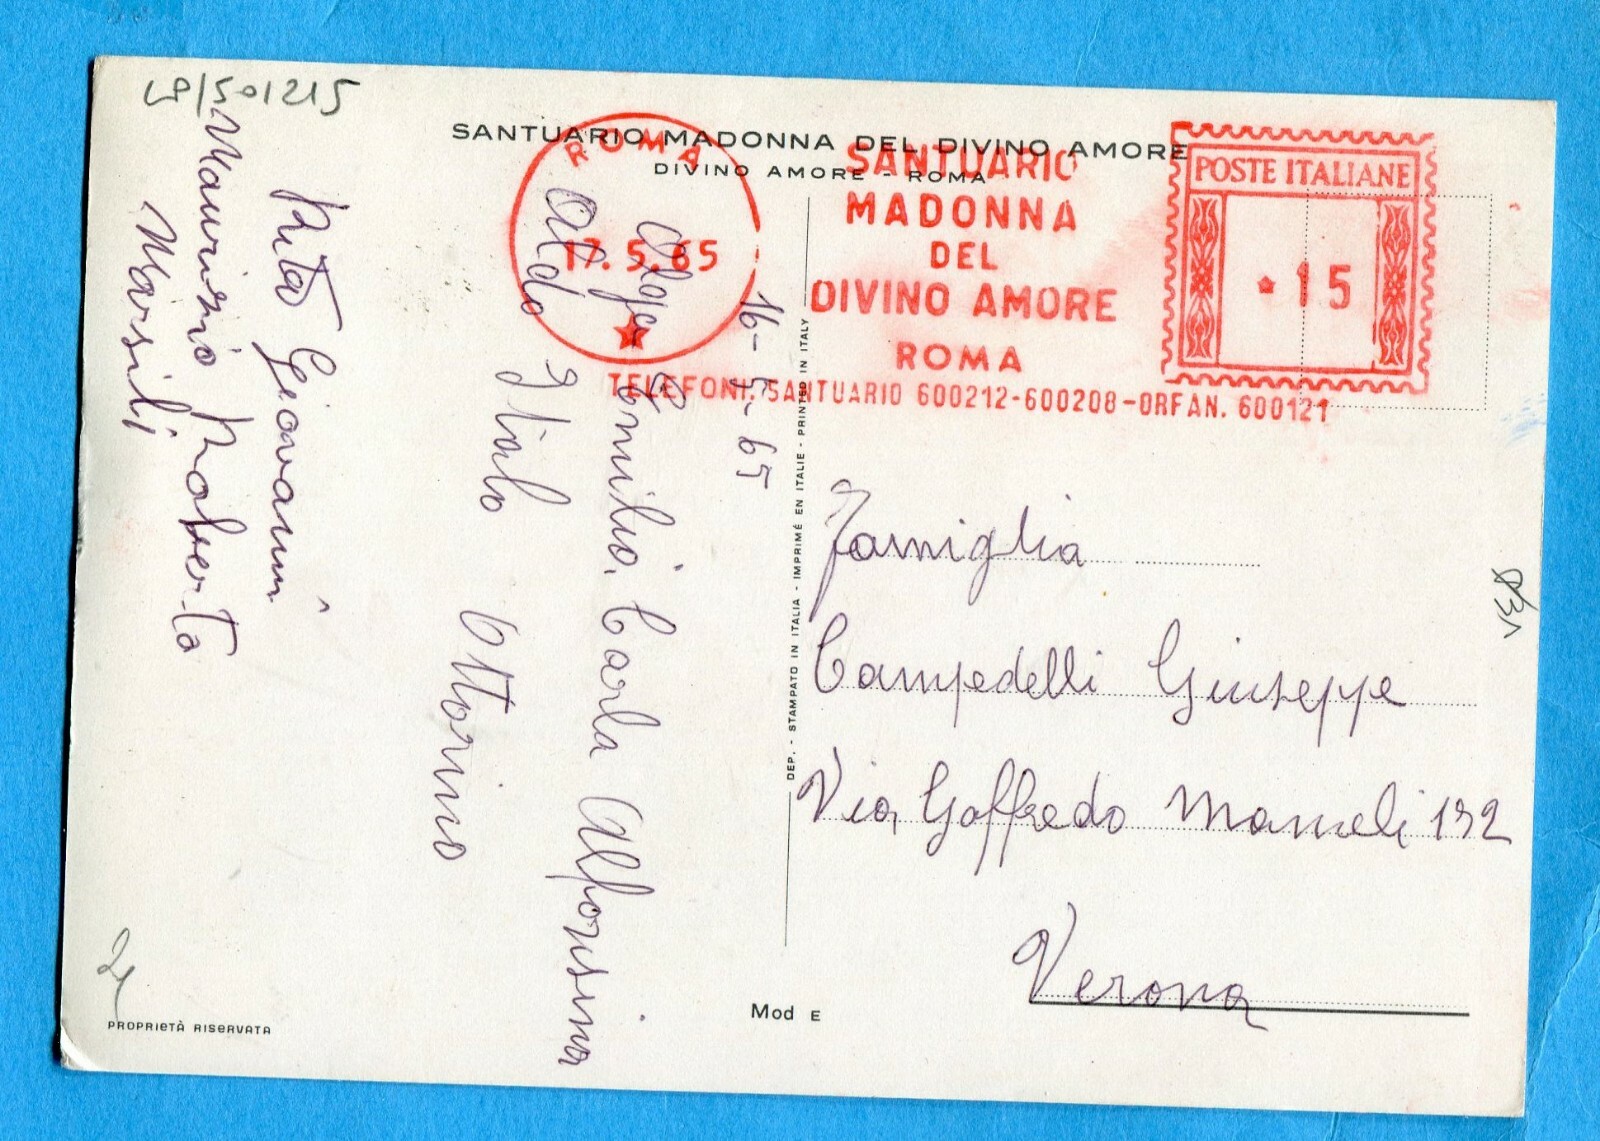 LP/501215
SANTUARIO MADONNA DEL DIVINO AMORE
DIVINO AMORE - ROMA
ROMA
17.5.65
SANTUARIO
MADONNA
DEL
DIVINO AMORE
ROMA
TELEFONI: SANTUARIO 600212-600208-ORFAN. 600121
POSTE ITALIANE
15
16-5-65
Olga Emilio, Carla Alfonsina
Aldo Italo Ottorino
Rita Giovanni
Maurizio Roberto
Marsili
DEP. - STAMPATO IN ITALIA - IMPRIMÉ EN ITALIE - PRINTED IN ITALY
Famiglia
Campedelli Giuseppe
Via Goffredo Mameli 132
Verona
Mod E
PROPRIETÀ RISERVATA